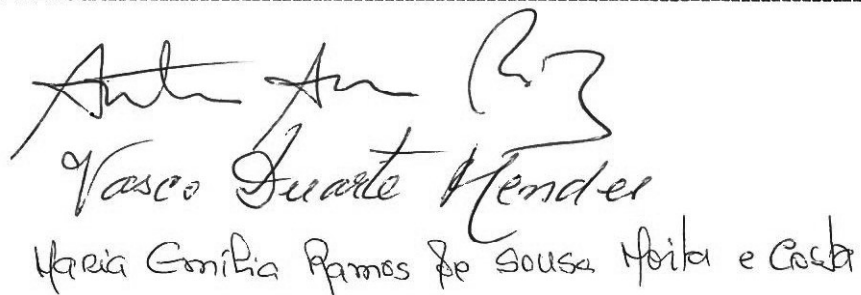 Vasco Duarte Mendes
Maria Emília Ramos de Sousa Moita e Costa